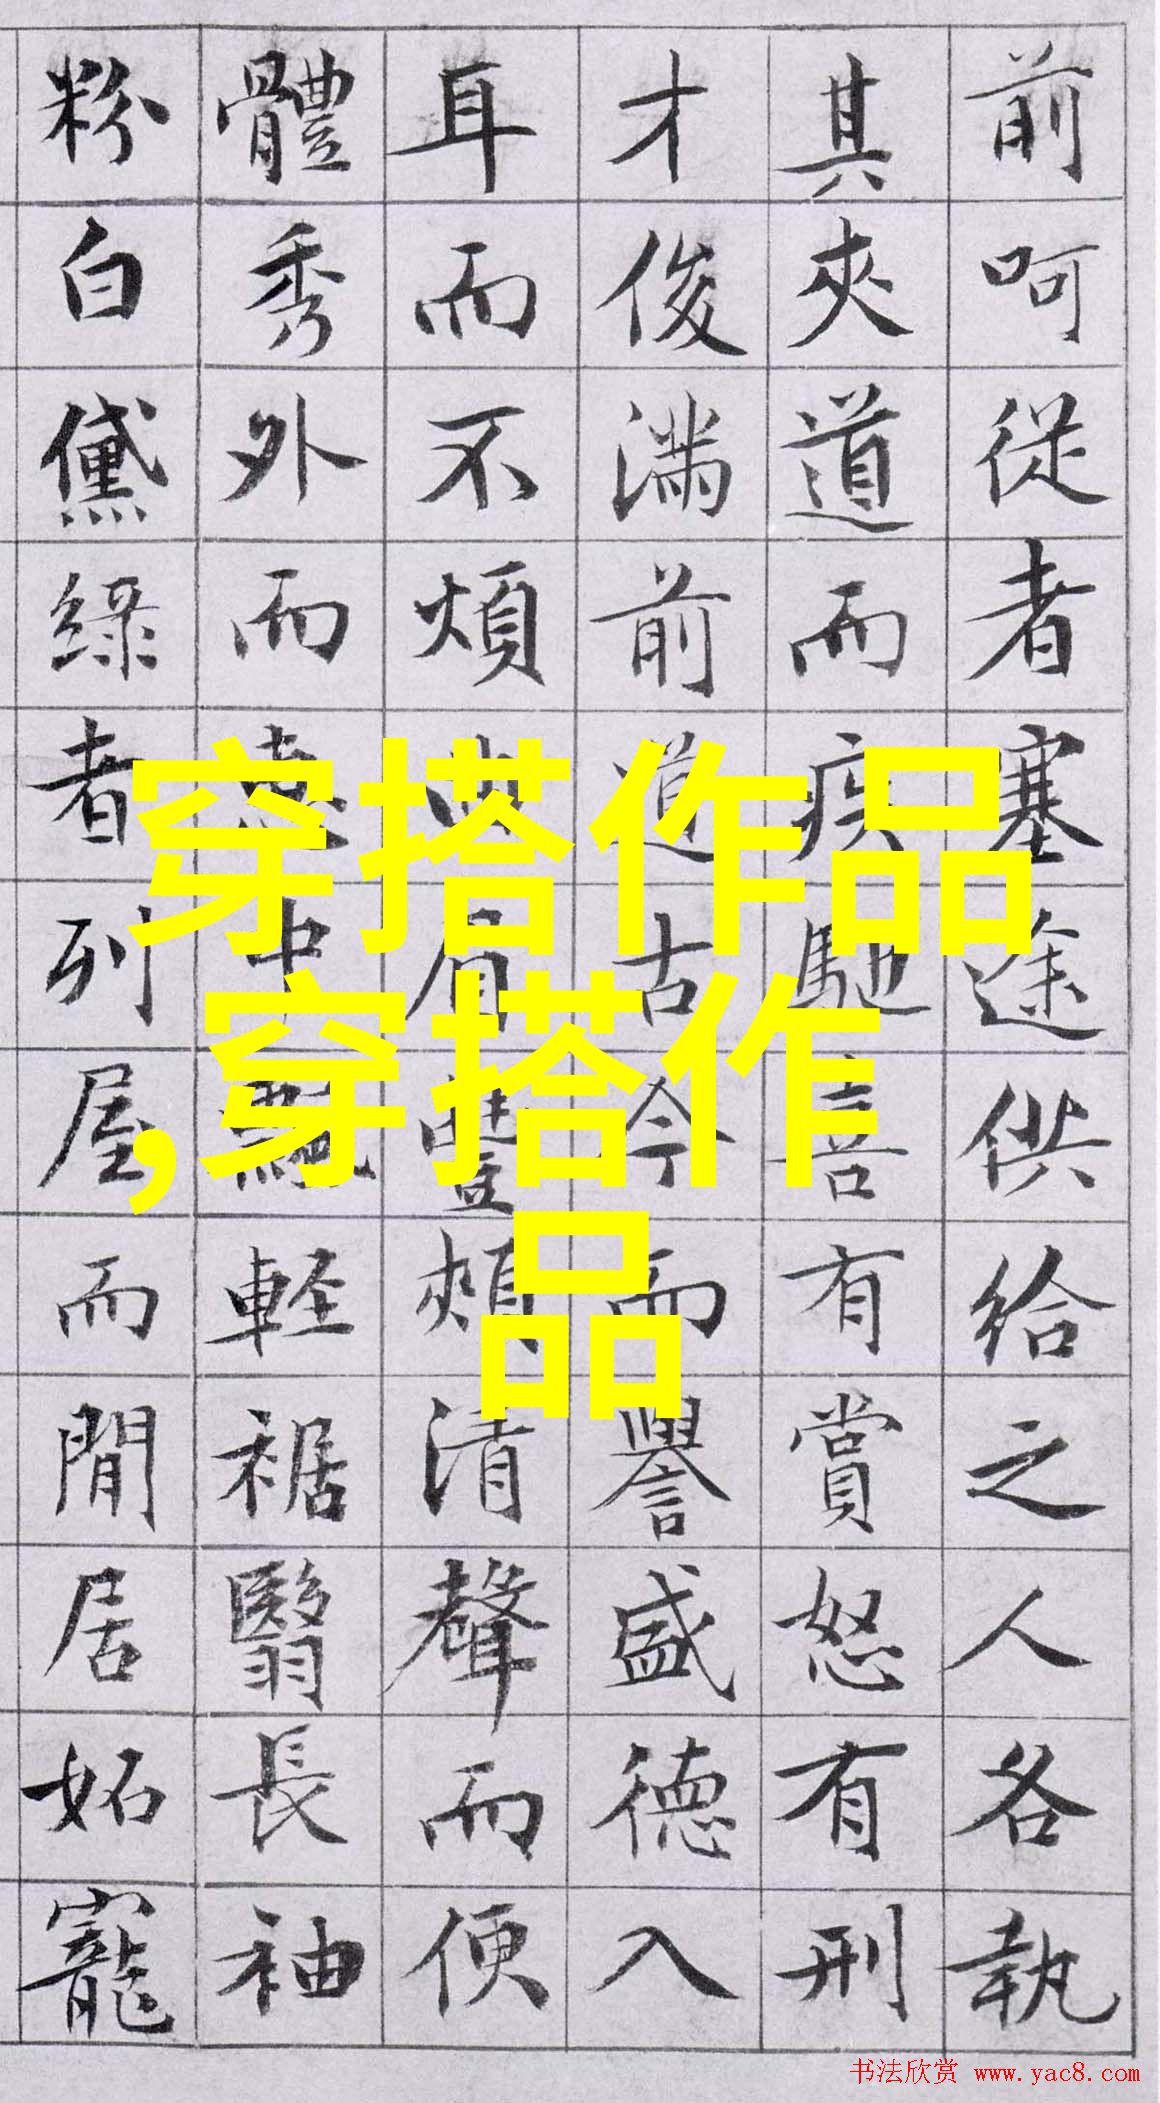 前呵從者塞途供給之人各執
其夾道而疾馳喜有賞怒有刑
才俊滿前道古今而譽盛德入
耳而不煩曲眉豐頰清聲而便
體秀外而惠中飄輕裾翳長袖
粉白黛綠者列屋而閒居妬寵
穿搭作品
,穿搭作
品
书法欣赏 www.yac8.com